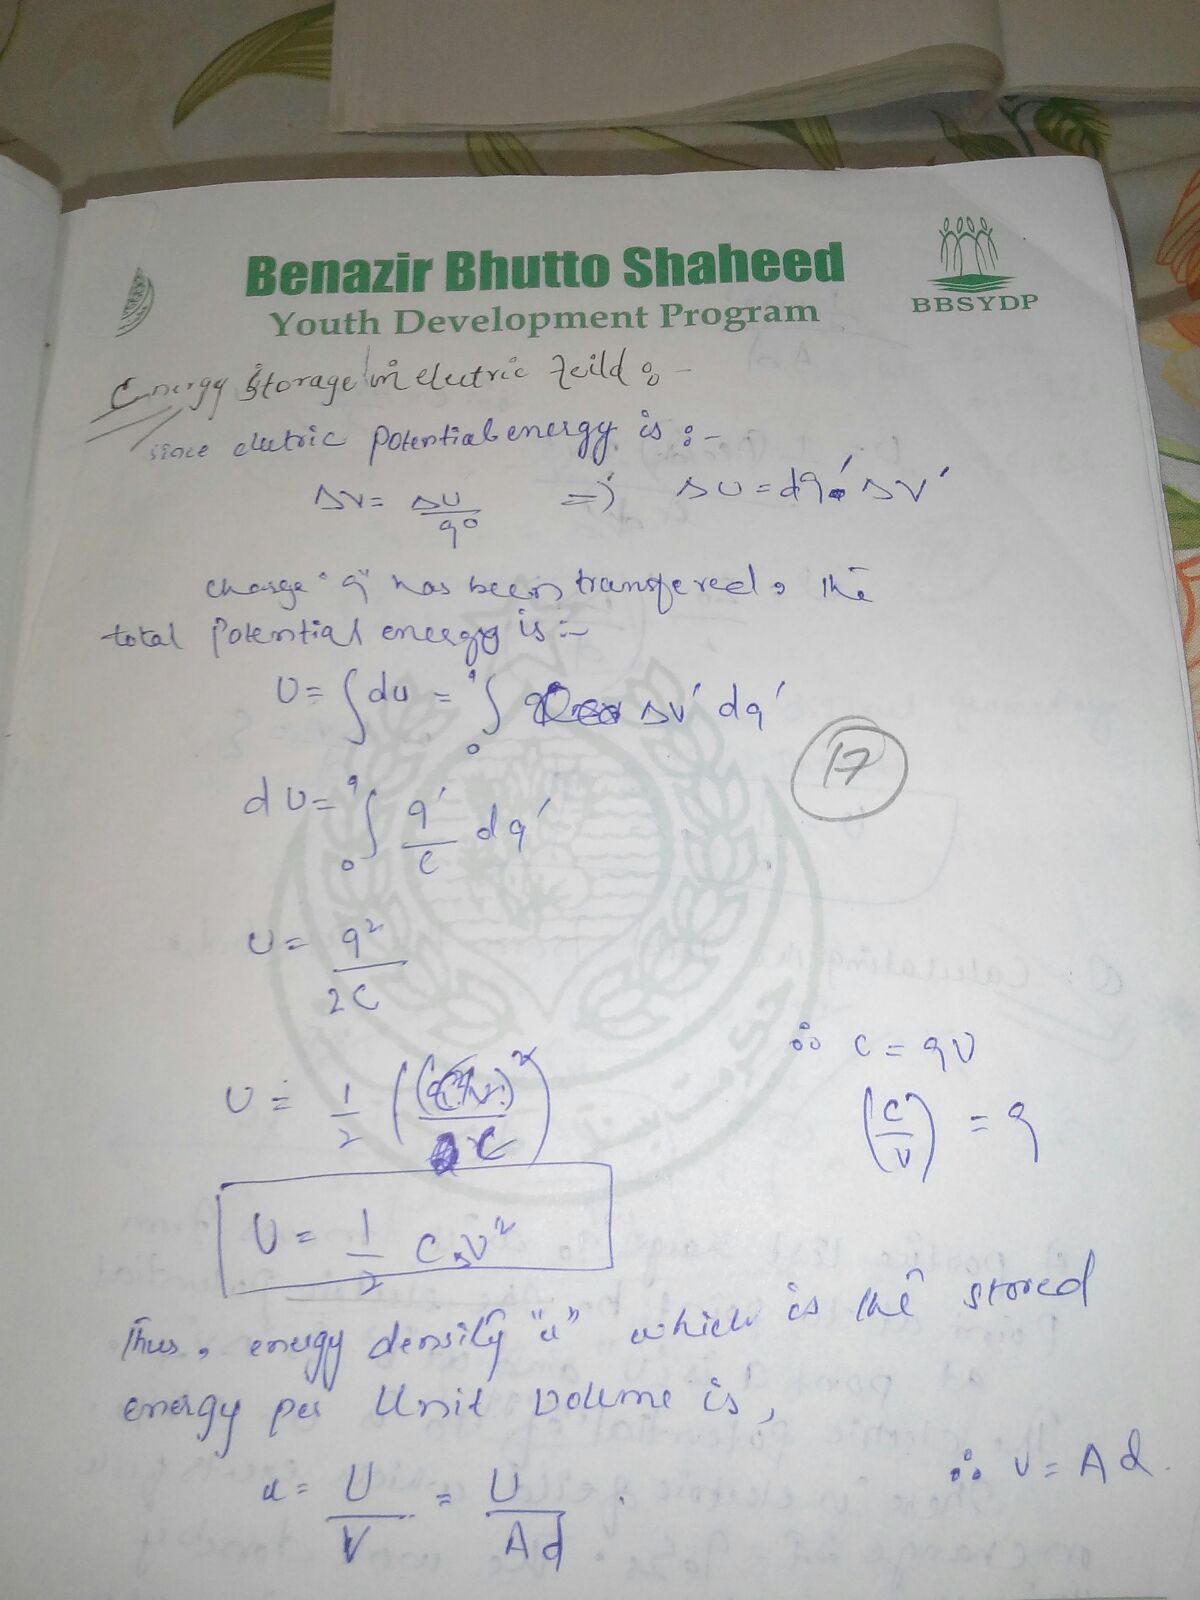 Benazir Bhutto Shaheed
Youth Development Program
BBSYDP
Energy Storage in electric feild :-
since eletric potential energy is :-
ΔV = ΔU / q₀ ⇒ ΔU = dq' ΔV'
charge "q" has been transfered, the
total potential energy is :-
U = ∫ du = ₀∫^q ΔV' dq'
17
dU = ₀∫^q q'/C dq'
U = q² / 2C
∴ C = qV
U = 1/2 ( ( )² / C )
(C/V) = q
U = 1/2 C ΔV²
Thus, energy density "u" which is the stored
energy per Unit volume is,
u = U/V = U/Ad . ∴ V = Ad.